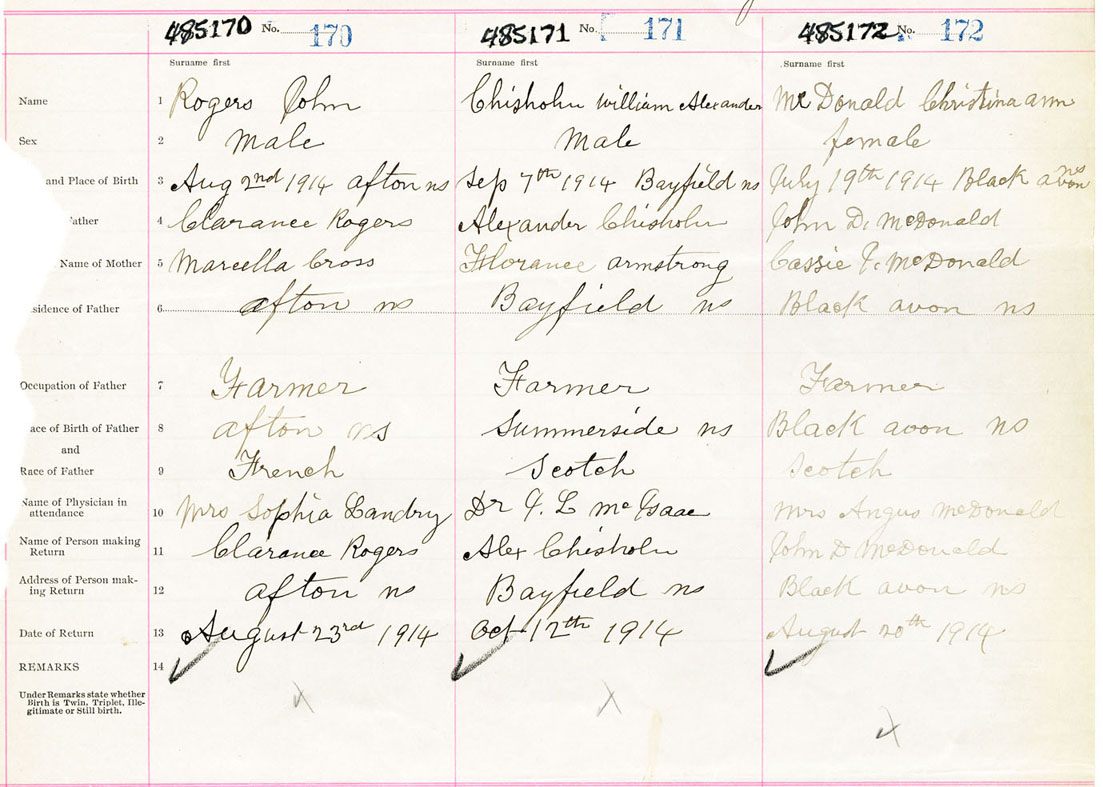 485170 No. 170 485171 No. 171 485172 No. 172
Surname first Surname first Surname first
Name 1 Rogers John Chisholm william Alexander Mc Donald Christina ann
Sex 2 male Male female
and Place of Birth 3 Aug 2nd 1914 afton ns Sep 7th 1914 Bayfield ns July 19th 1914 Black avon ns
Father 4 Clarance Rogers Alexander Chisholm John D. McDonald
Name of Mother 5 Marcella Cross Florance armstrong Cassie McDonald
sidence of Father 6 afton ns Bayfield ns Black avon ns
Occupation of Father 7 Farmer Farmer Farmer
ace of Birth of Father 8 afton ns Summerside ns Black avon ns
and
Race of Father 9 French Scotch Scotch
Name of Physician in
attendance 10 Mrs Sophia Landry Dr L mc Isaac Mrs Angus McDonald
Name of Person making
Return 11 Clarance Rogers Alex Chisholm John D McDonald
Address of Person mak-
ing Return 12 afton ns Bayfield ns Black avon ns
Date of Return 13 August 23rd 1914 Oct 12th 1914 August 20th 1914
REMARKS 14
Under Remarks state whether
Birth is Twin, Triplet, Ille-
gitimate or Still birth.